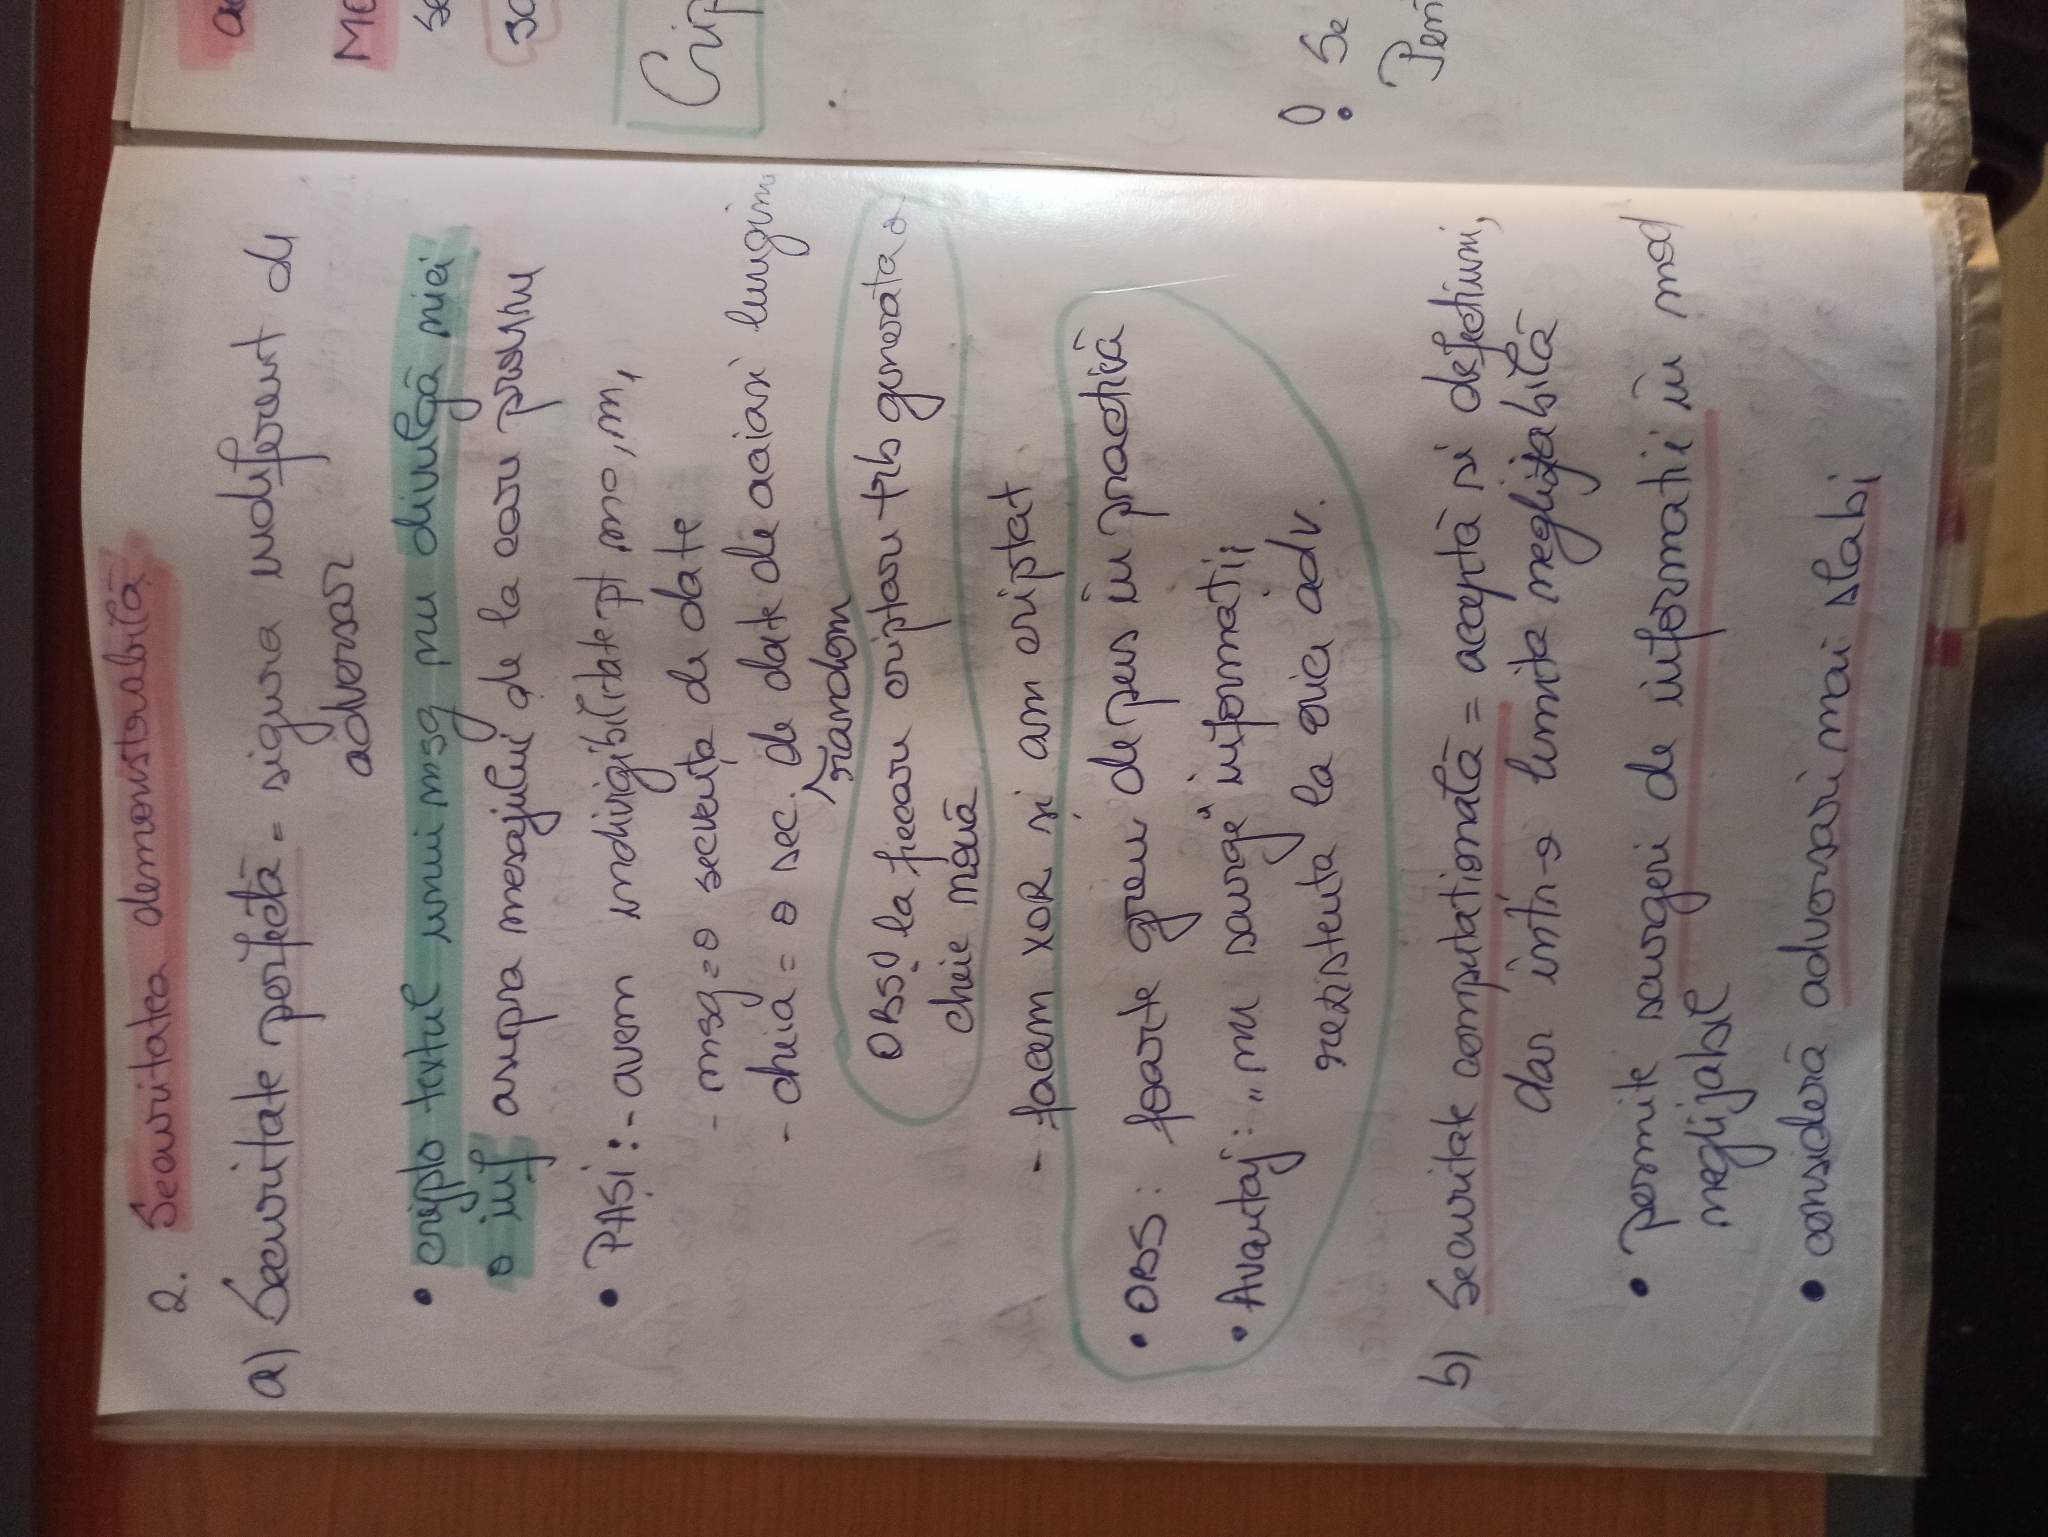 2. Securitatea demonstrabilă
a) Securitate perfectă = sigura indiferent de
adversar
• cripto textul unui msg nu divulgă nici
o inf asupra mesajului de la care provine
• PAȘI: - avem indivigibilitate pt mo, m1
- msg = o secvența de date
- cheia = o sec. de date de aceiasi lungim
random
OBS! la fiecare criptare trb generata o
cheie nouă
- facem XOR si am criptat
• OBS: foarte greu de pus in practică
• Avantaj: "nu scurge" informatii
rezistenta la orice adv.
b) Securitate computationată = acceptă si defectiuni,
dar intr-o limita neglijabilă
• permite scurgeri de informatii în mod
neglijabil
• consideră adversari mai slabi
Me
30
Crip
! Se